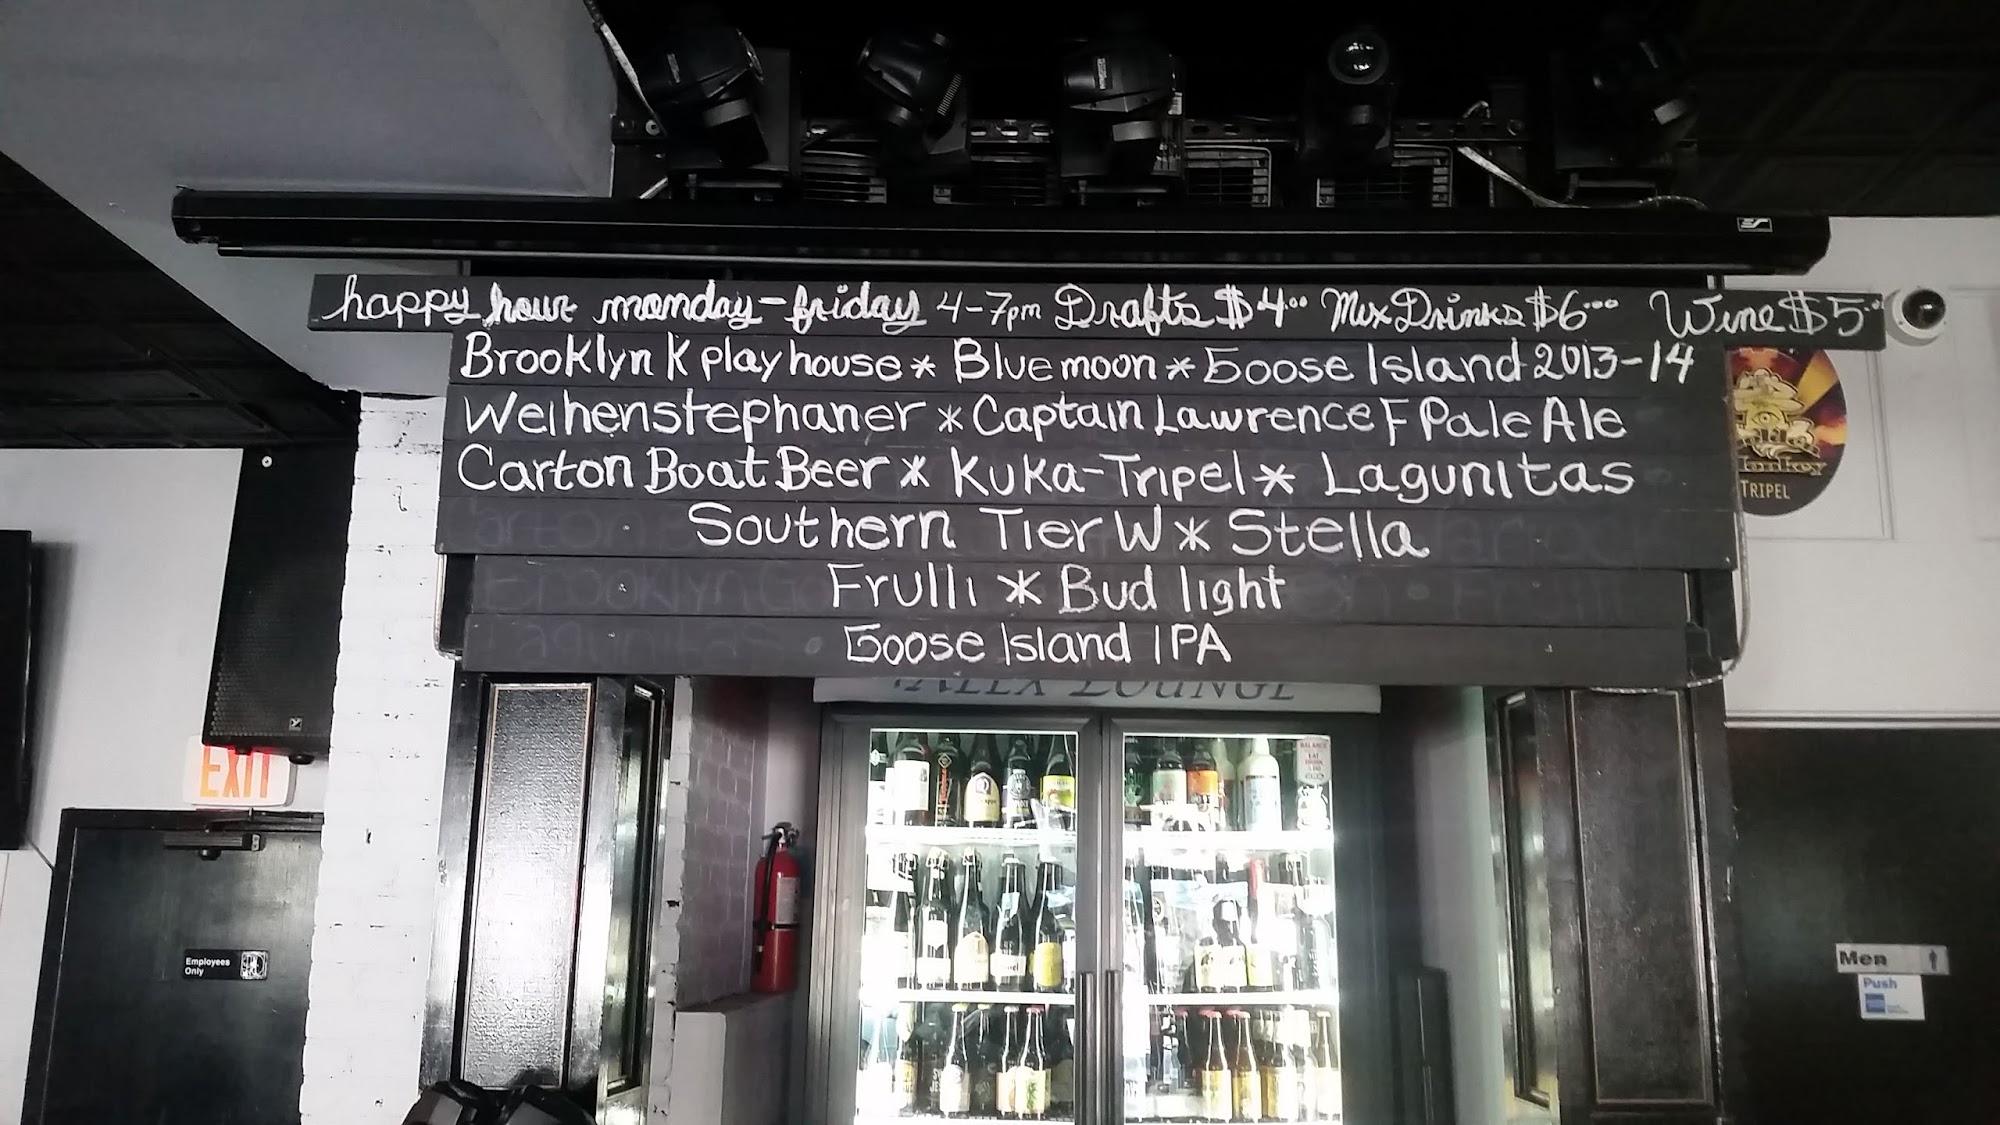 happy hour monday-friday 4-7pm Drafts $4.00 Mix Drinks $6.00 Wine $5.00
Brooklyn K playhouse * Blue moon * Goose Island 2013-14
Weihenstephaner * Captain Lawrence F Pale Ale
Carton Boat Beer * Kuka-Tripel * Lagunitas
Southern Tier W * Stella
Frulli * Bud light
Goose Island IPA
LOUNGE
Monkey
TRIPEL
EXIT
Employees
Only
Men
Push